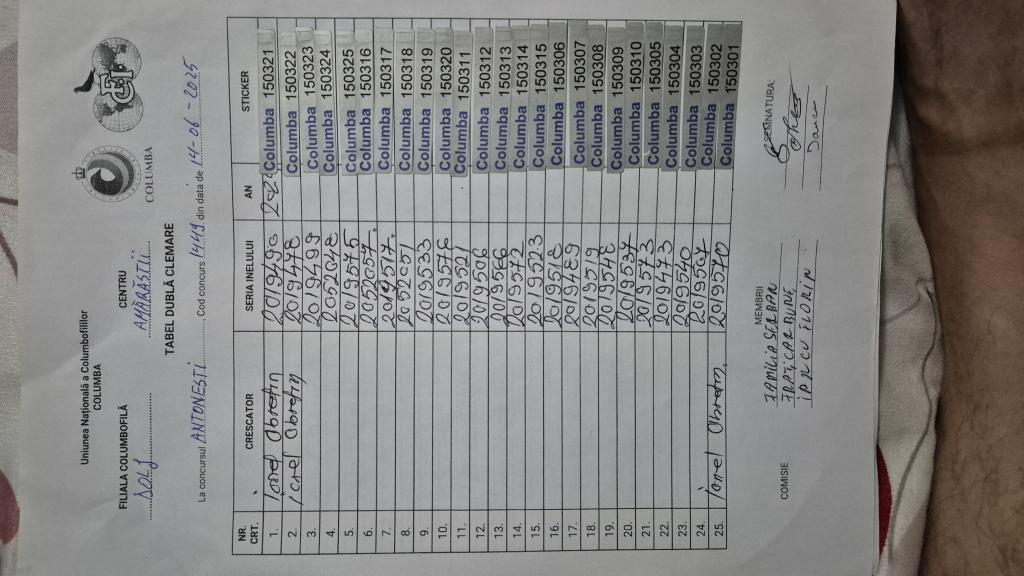 Uniunea Națională a Columbofililor
COLUMBA
COLUMBA
FILIALA COLUMBOFILĂ CENTRU
DOLJ AMĂRĂȘTII
TABEL DUBLĂ CLEMARE
La concursul ANTONEȘTI, Cod concurs 14419 din data de 14-06-2025
NR. CRT. CRESCATOR SERIA INELULUI AN STICKER
1. Ionel Obretin 2019490 Columba 150321
2. Ionel Obretin 2019478 Columba 150322
3. 2019499 Columba 150323
4. 2052048 Columba 150324
5. 2019575 Columba 150325
6. 2052057 Columba 150316
7. 2019517 Columba 150317
8. 2052051 Columba 150318
9. 2019533 Columba 150319
10. 2019576 Columba 150320
11. 2019521 Columba 150311
12. 2019506 Columba 150312
13. 2019566 Columba 150313
14. 2019572 Columba 150314
15. 2019523 Columba 150315
16. 2019518 Columba 150306
17. 2019489 Columba 150307
18. 2019519 Columba 150308
19. 2019548 Columba 150309
20. 2019537 Columba 150310
21. 2019573 Columba 150305
22. 2019473 Columba 150304
23. 2019540 Columba 150303
24. 2019507 Columba 150302
25. Ionel Obretin 2019570 Columba 150301
COMISIE MEMBRII SEMNATURA:
SERBAN
FRATICA
FLORIN